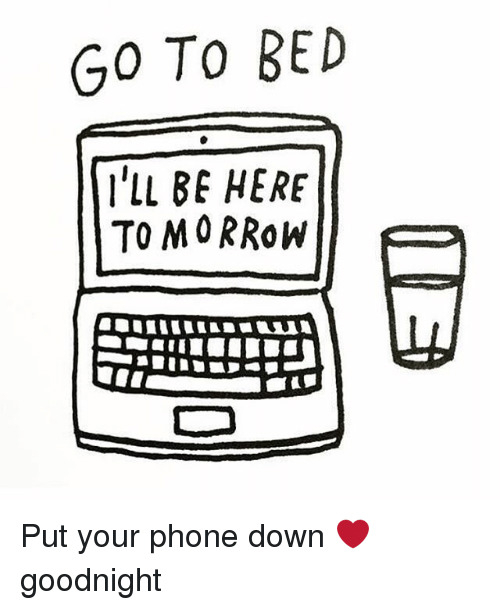 GO TO BED
I'LL BE HERE
TOMORROW
Put your phone down ❤
goodnight